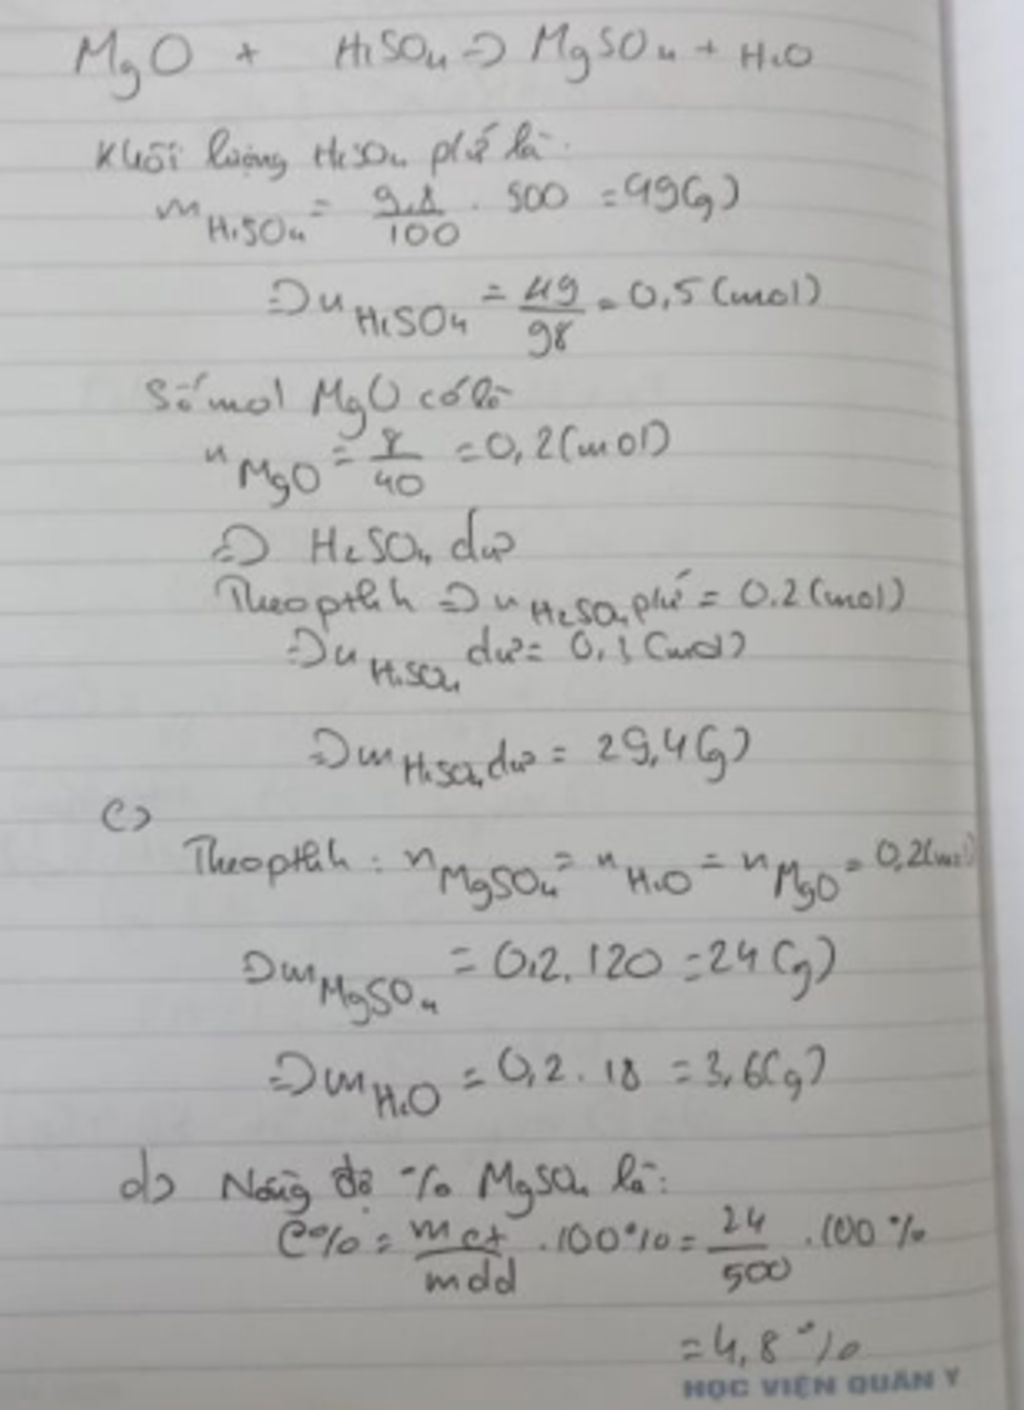 MgO + H2SO4 => MgSO4 + H2O
Khối lượng H2SO4 p/ứ là:
mH2SO4 = 9.8/100 . 500 = 49(g)
=> nH2SO4 = 49/98 = 0,5 (mol)
Số mol MgO có là
nMgO = 8/40 = 0,2(mol)
=> H2SO4 dư
Theo ptHh => nH2SO4 p/ứ = 0.2 (mol)
=> nH2SO4 dư = 0,3 (mol)
=> mH2SO4 dư = 29,4(g)
c)
Theo ptHh: nMgSO4 = nH2O = nMgO = 0,2(mol)
=> mMgSO4 = 0,2. 120 = 24 (g)
=> mH2O = 0,2. 18 = 3,6(g)
d) Nồng độ % MgSO4 là:
C% = mct/mdd .100% = 24/500 .100%
= 4,8 %
HỌC VIỆN QUÂN Y